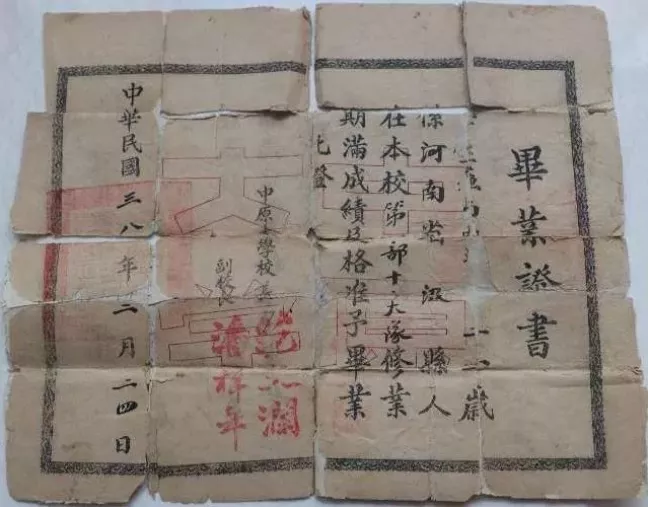 畢業證書
係河南省汲縣人
在本校第 部十六大隊修業
期滿成績及格准予畢業
此證
中原大學校長
副校長
范文瀾
潘梓年
中華民國三八年二月二四日